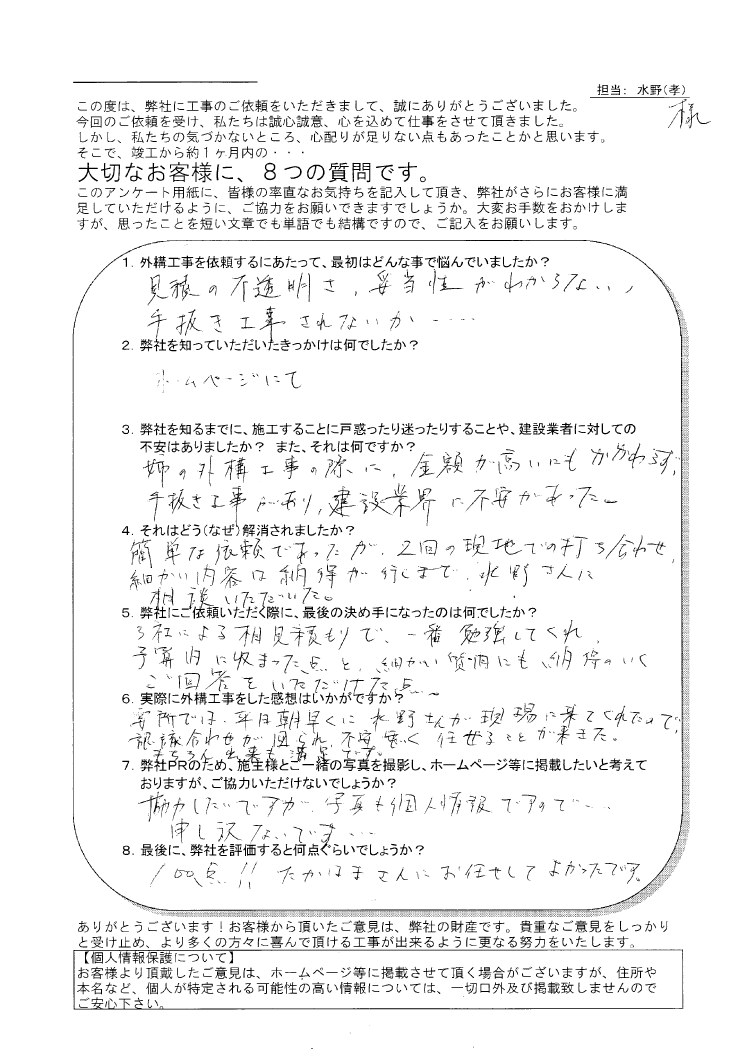 担当: 水野(孝)
様
この度は、弊社に工事のご依頼をいただきまして、誠にありがとうございました。
今回のご依頼を受け、私たちは誠心誠意、心を込めて仕事をさせて頂きました。
しかし、私たちの気づかないところ、心配りが足りない点もあったことかと思います。
そこで、竣工から約1ヶ月内の・・・
大切なお客様に、8つの質問です。
このアンケート用紙に、皆様の率直なお気持ちを記入して頂き、弊社がさらにお客様に満
足していただけるように、ご協力をお願いできますでしょうか。大変お手数をおかけしま
すが、思ったことを短い文章でも単語でも結構ですので、ご記入をお願いします。
1. 外構工事を依頼するにあたって、最初はどんな事で悩んでいましたか?
見積の不透明さ、妥当性がわからない、
手抜き工事されないか……
2. 弊社を知っていただいたきっかけは何でしたか?
ホームページにて
3. 弊社を知るまでに、施工することに戸惑ったり迷ったりすることや、建設業者に対しての
不安はありましたか? また、それは何ですか?
姉の外構工事の際に、金額が高いにもかかわらず、
手抜き工事があり、建設業界に不安があった。
4. それはどう(なぜ)解消されましたか?
簡単な依頼であったが、2回の現地での打ち合わせ、
細かい内容は納得が行くまで、水野さんに
相談いただいた。
5. 弊社にご依頼いただく際に、最後の決め手になったのは何でしたか?
3社による相見積もりで、一番勉強してくれ、
予算内に収まった点と、細かい質問にも納得のいく
ご回答をいただけた点
6. 実際に外構工事をした感想はいかがですか?
要所では、平日朝早くに水野さんが現場に来てくれたので、
認識合わせが図られ、不安無く任せることが来ました。
もちろん出来も満足です。
7. 弊社PRのため、施主様とご一緒の写真を撮影し、ホームページ等に掲載したいと考えて
おりますが、ご協力いただけないでしょうか?
協力したいですが、写真も個人情報ですので…
申し訳ないです…
8. 最後に、弊社を評価すると何点ぐらいでしょうか?
100点!! たかはまさんにお任せしてよかったです。
ありがとうございます!お客様から頂いたご意見は、弊社の財産です。貴重なご意見をしっかり
と受け止め、より多くの方々に喜んで頂ける工事が出来るように更なる努力をいたします。
【個人情報保護について】
お客様より頂戴したご意見は、ホームページ等に掲載させて頂く場合がございますが、住所や
本名など、個人が特定される可能性の高い情報については、一切口外及び掲載致しませんので
ご安心下さい。